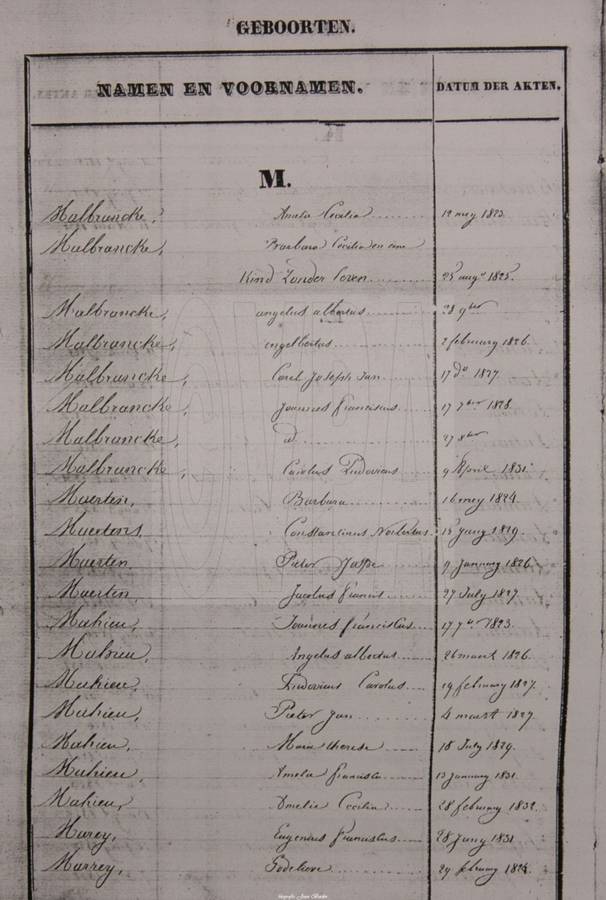 GEBOORTEN.
NAMEN EN VOORNAMEN. DATUM DER AKTEN.
M.
Malbrancke, Amelia Cecilia 12 mey 1823.
Malbrancke, Barbara Cecilia en een
Kind Zonder leven 25 augt 1825.
Malbrancke, angelus albertus 28 9ber
Malbrancke, engelbertus 2 february 1826.
Malbrancke, Carel Joseph Jan 17 do 1827.
Malbrancke, Joannes franciscus 17 7ber 1828.
Malbrancke, id 27 8ber
Malbrancke, Carolus Ludovicus 9 April 1831.
Maertin, Barbara 16 mey 1824.
Maertens Constantinus Norbertus 15 Juny 1829.
Maertin Pieter 9 January 1826
Maertin Jacobus francis 27 July 1827.
Mahieu, Joannes franciscus 17 7br 1823.
Mahieu, Angelus albertus 26 maart 1826.
Mahieu, Ludovicus Carolus 19 february 1827.
Mahieu, Pieter Jan 4 maart 1827.
Mahieu, Maria therese 18 July 1829.
Mahieu, Amelia francisca 13 January 1831.
Mahieu, Amelia Cecilia 28 february 1832.
Marey, Eugenius franciscus 28 Juny 1831
Marrey, Godelieve 29 february 1824.